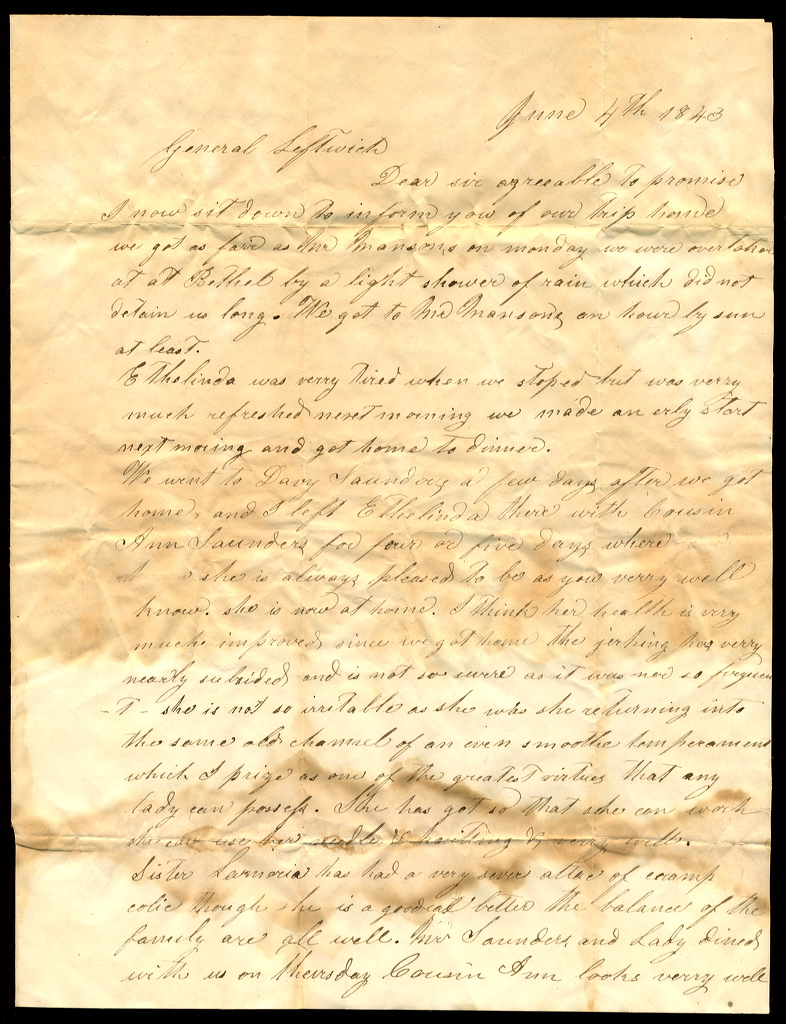 June 4th 1843
General Leftwich
Dear sir agreeable to promise
I now sit down to inform you of our trip home
we got as farr as Mr Mansons on monday we were overtaken
at at Bethel by a light shower of rain which did not
detain us long. We got to Mr Mansons an hour by sun
at least.
Ethelinda was verry tired when we stoped but was verry
much refreshed next morning we made an erly start
next moring and got home to dinner.
We went to Davy Saunders a few days after we got
home, and I left Ethelinda there with Cousin
Ann Saunders for four or five days where
she is always pleased to be as you verry well
know. she is now at home. I think her health is very
much improved since we got home the jerking has verry
nearly subsided and is not so severe as it was nor so frequen
-t- she is not so irritable as she was she returning into
the same old channel of an even smoothe temperament
which I prize as one of the greatest virtues that any
lady can possess. She has got so that she can work
she can use her needle & knitting & very well.
Sister has had a very sever attac of cramp
colic though she is a goodeal better the balance of the
family are all well. Mr Saunders and Lady dined
with us on thursday Cousin Ann looks verry well